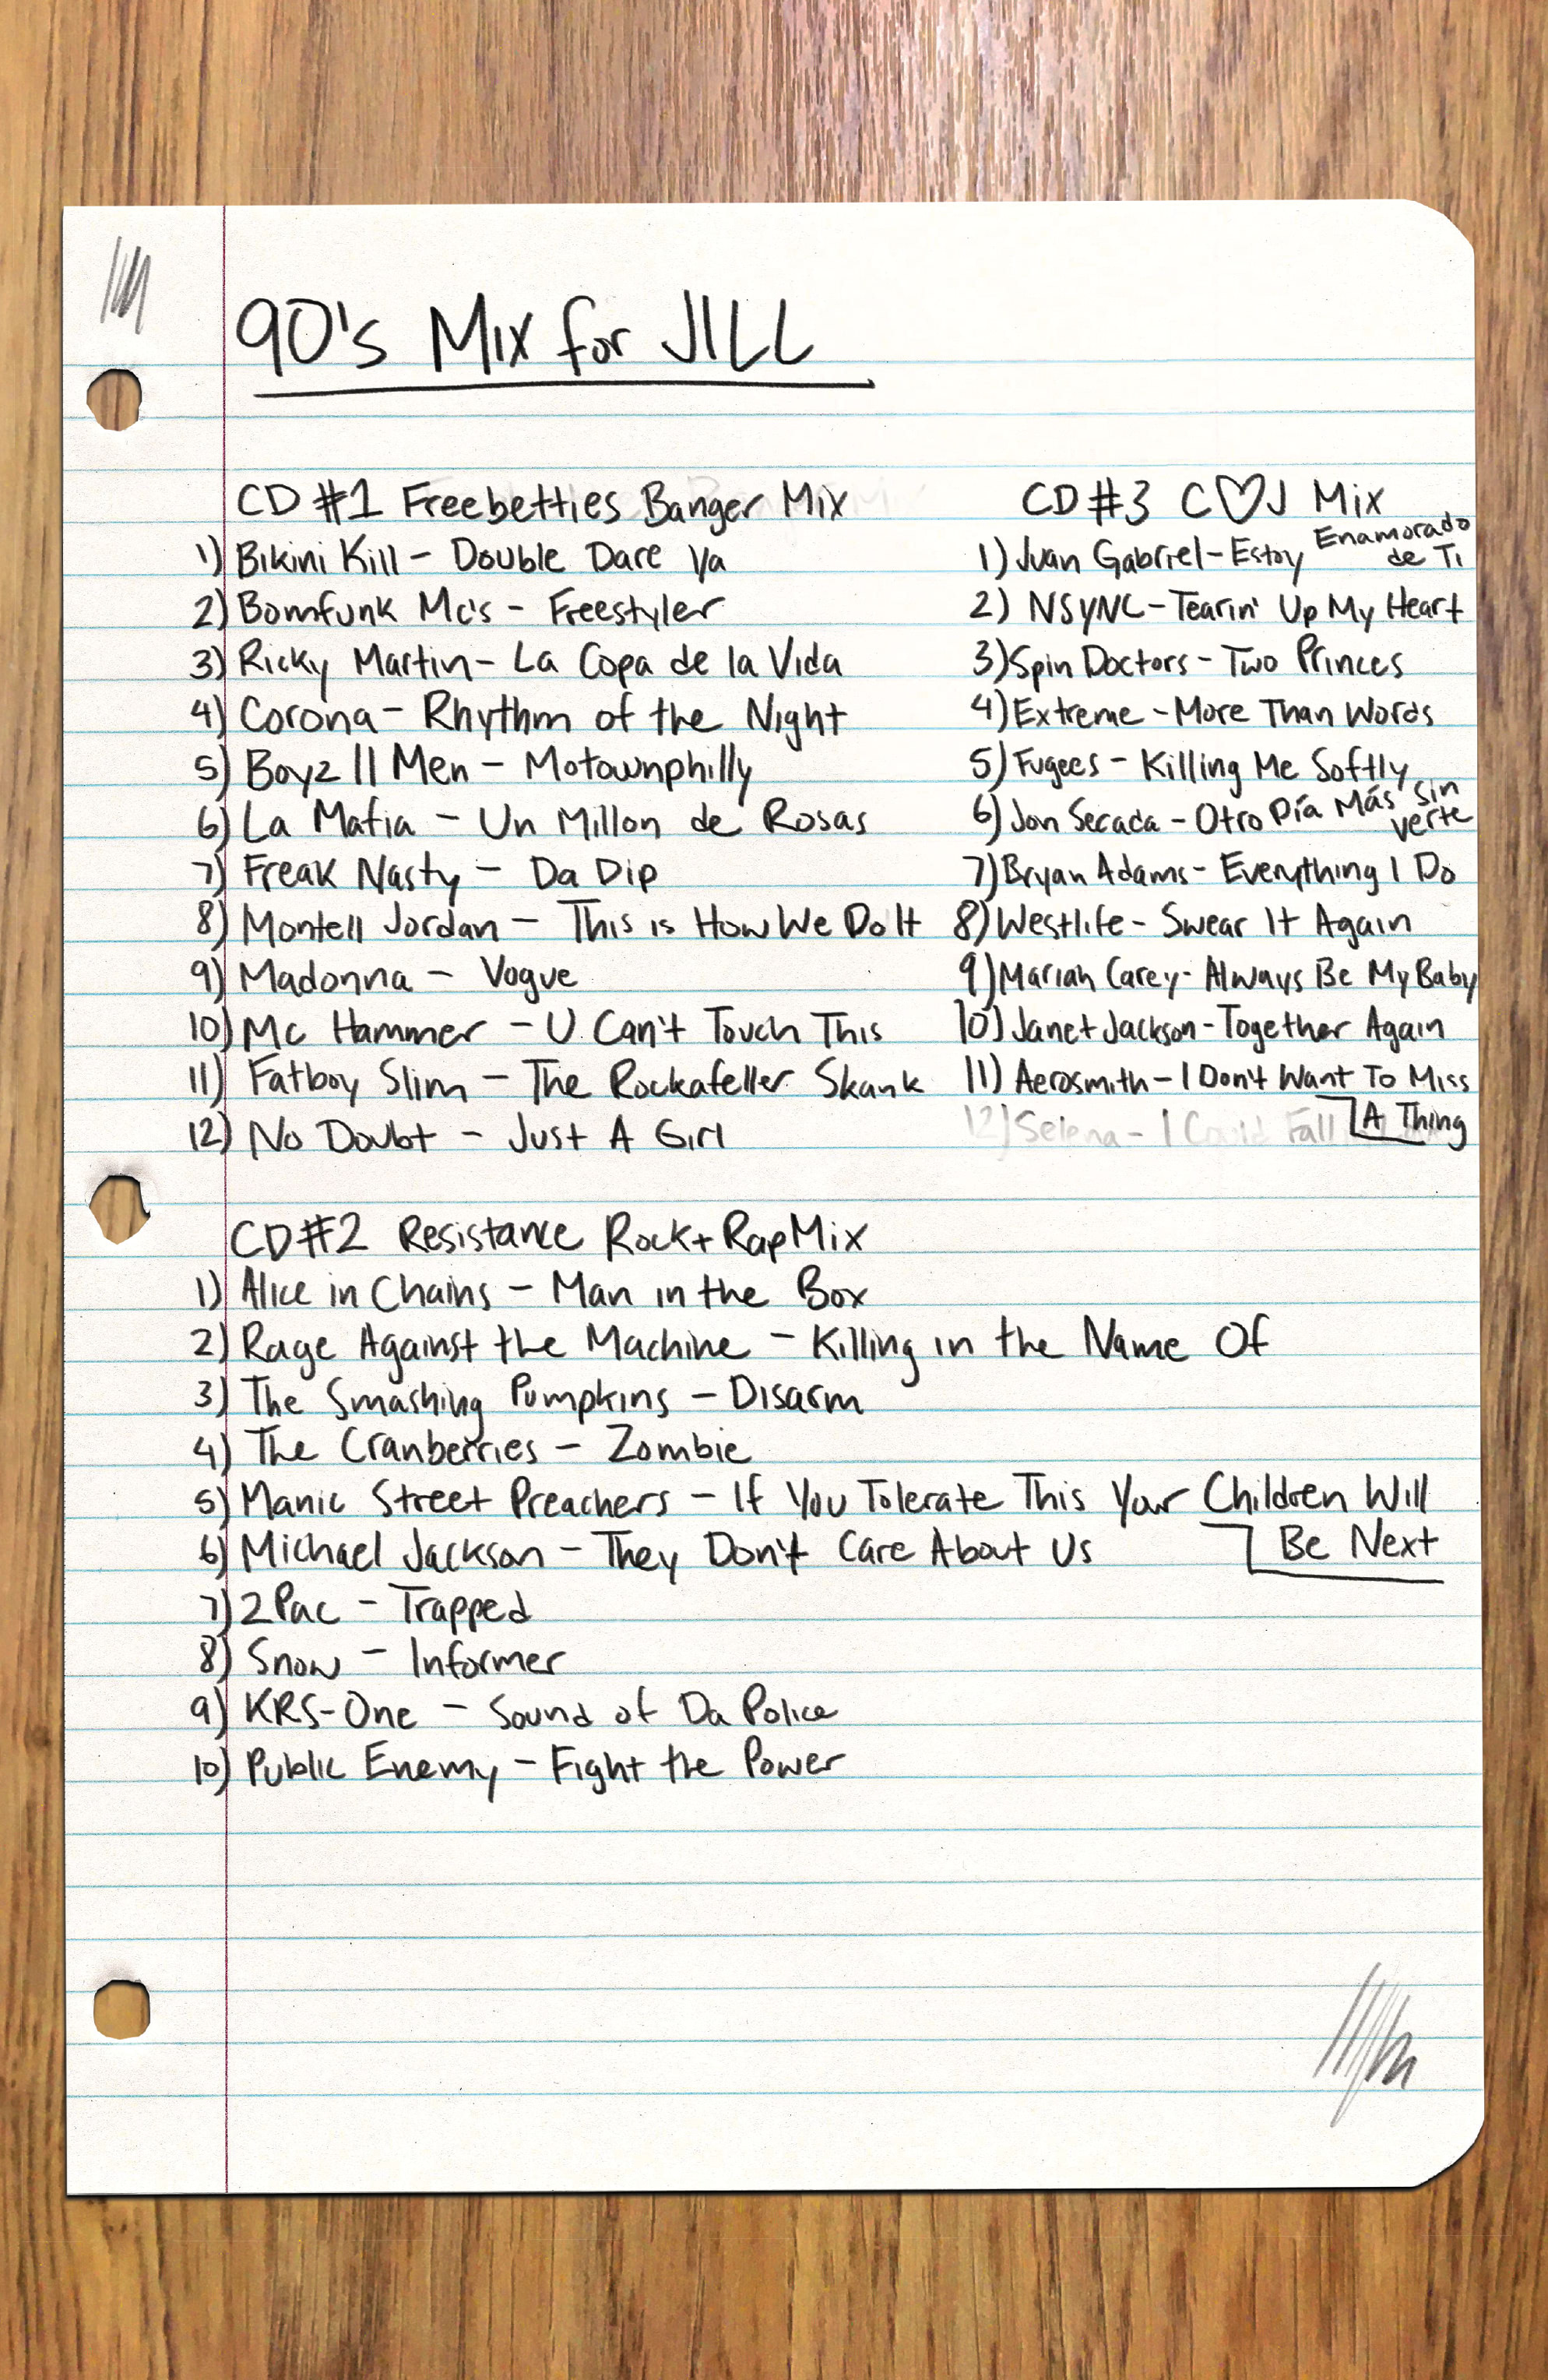 90's Mix for JILL
CD #1 Freebetties Banger Mix
1) Bikini Kill - Double Dare Ya
2) Bomfunk Mc's - Freestyler
3) Ricky Martin - La Copa de la Vida
4) Corona - Rhythm of the Night
5) Boyz II Men - Motownphilly
6) La Mafia - Un Millon de Rosas
7) Freak Nasty - Da Dip
8) Montell Jordan - This is How We Do It
9) Madonna - Vogue
10) Mc Hammer - U Can't Touch This
11) Fatboy Slim - The Rockafeller Skank
12) No Doubt - Just A Girl
CD #3 C♡J Mix
1) Juan Gabriel - Estoy Enamorado
de Ti
2) NSYNC - Tearin' Up My Heart
3) Spin Doctors - Two Princes
4) Extreme - More Than Words
5) Fugees - Killing Me Softly
6) Jon Secada - Otro Día Más Sin
Verte
7) Bryan Adams - Everything I Do
8) Westlife - Swear It Again
9) Mariah Carey - Always Be My Baby
10) Janet Jackson - Together Again
11) Aerosmith - I Don't Want To Miss
A Thing
12) Selena - I Could Fall
CD #2 Resistance Rock + Rap Mix
1) Alice in Chains - Man in the Box
2) Rage Against the Machine - Killing in the Name Of
3) The Smashing Pumpkins - Disarm
4) The Cranberries - Zombie
5) Manic Street Preachers - If You Tolerate This Your Children Will
Be Next
6) Michael Jackson - They Don't Care About Us
7) 2Pac - Trapped
8) Snow - Informer
9) KRS-One - Sound of Da Police
10) Public Enemy - Fight the Power